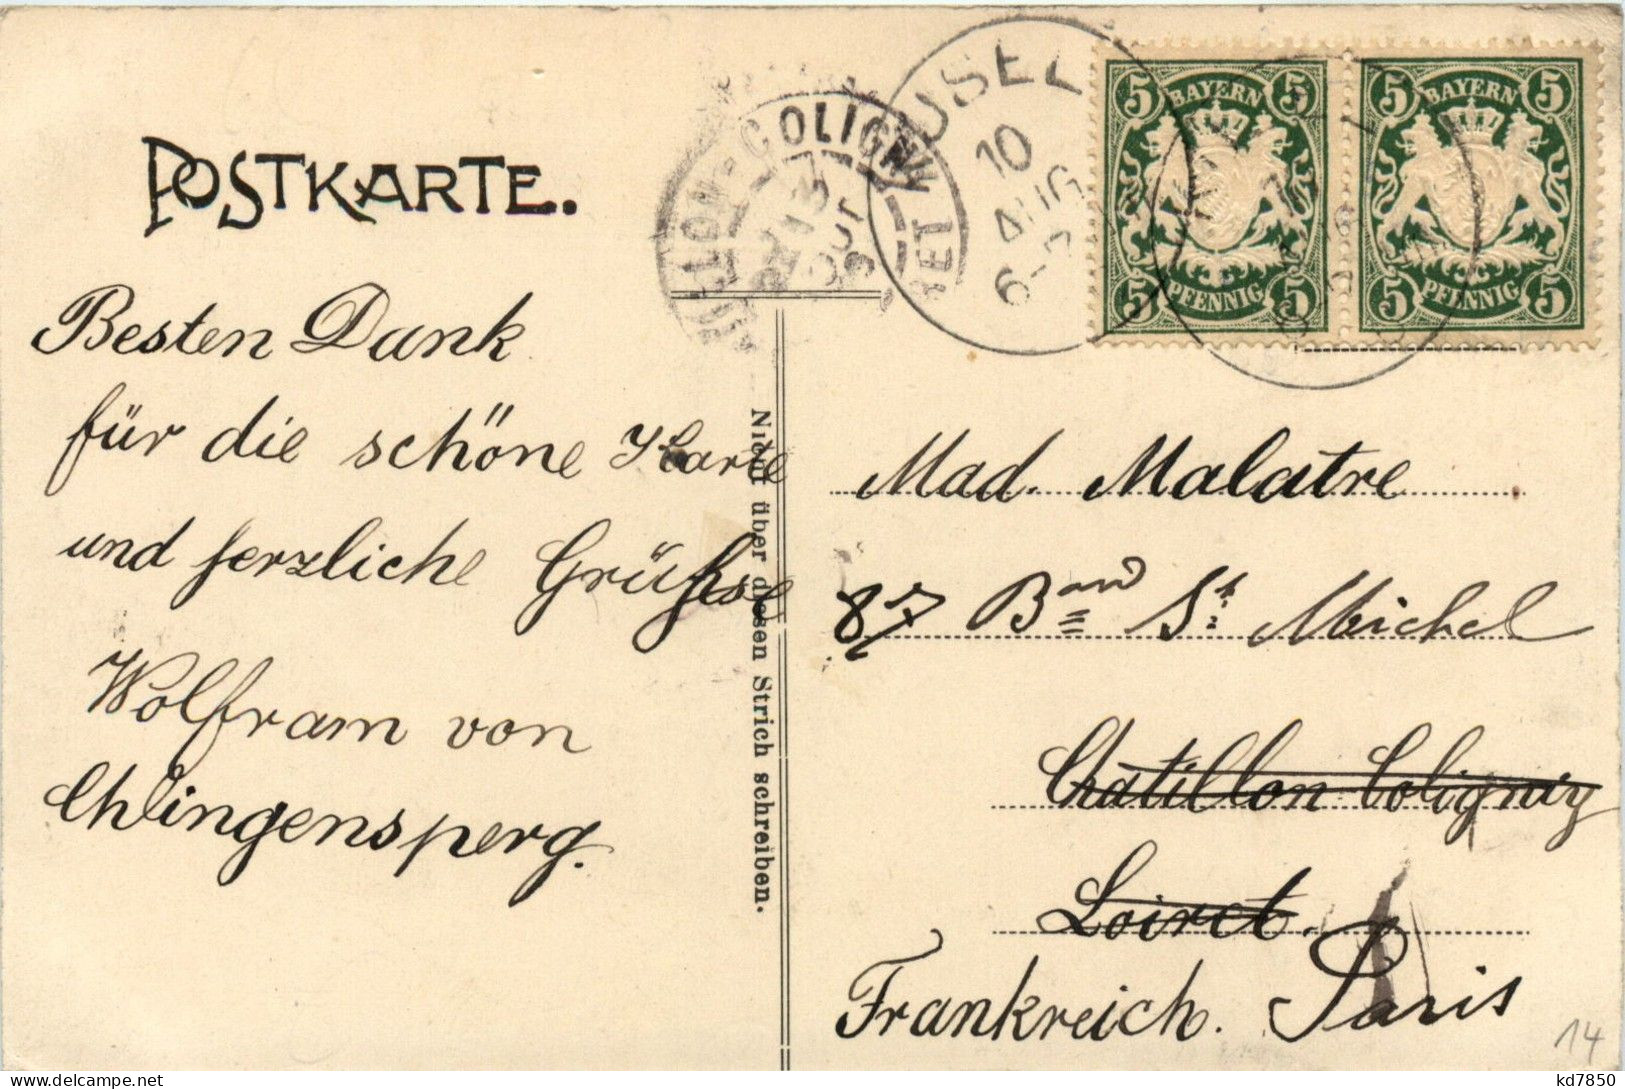 POSTKARTE.
Besten Dank
für die schöne Karte
und herzliche Grüsse
Wolfram von
Chlingensperg.
Nicht über diesen Strich schreiben.
COLIGNY
USEL
10
AUG
6-7
5 BAYERN 5
5 PFENNIG 5
5 BAYERN 5
5 PFENNIG 5
Mad. Malatre
87 B^ard St Michel
Chatillon Coligny
Loiret.
Frankreich. Paris
14
kd7850